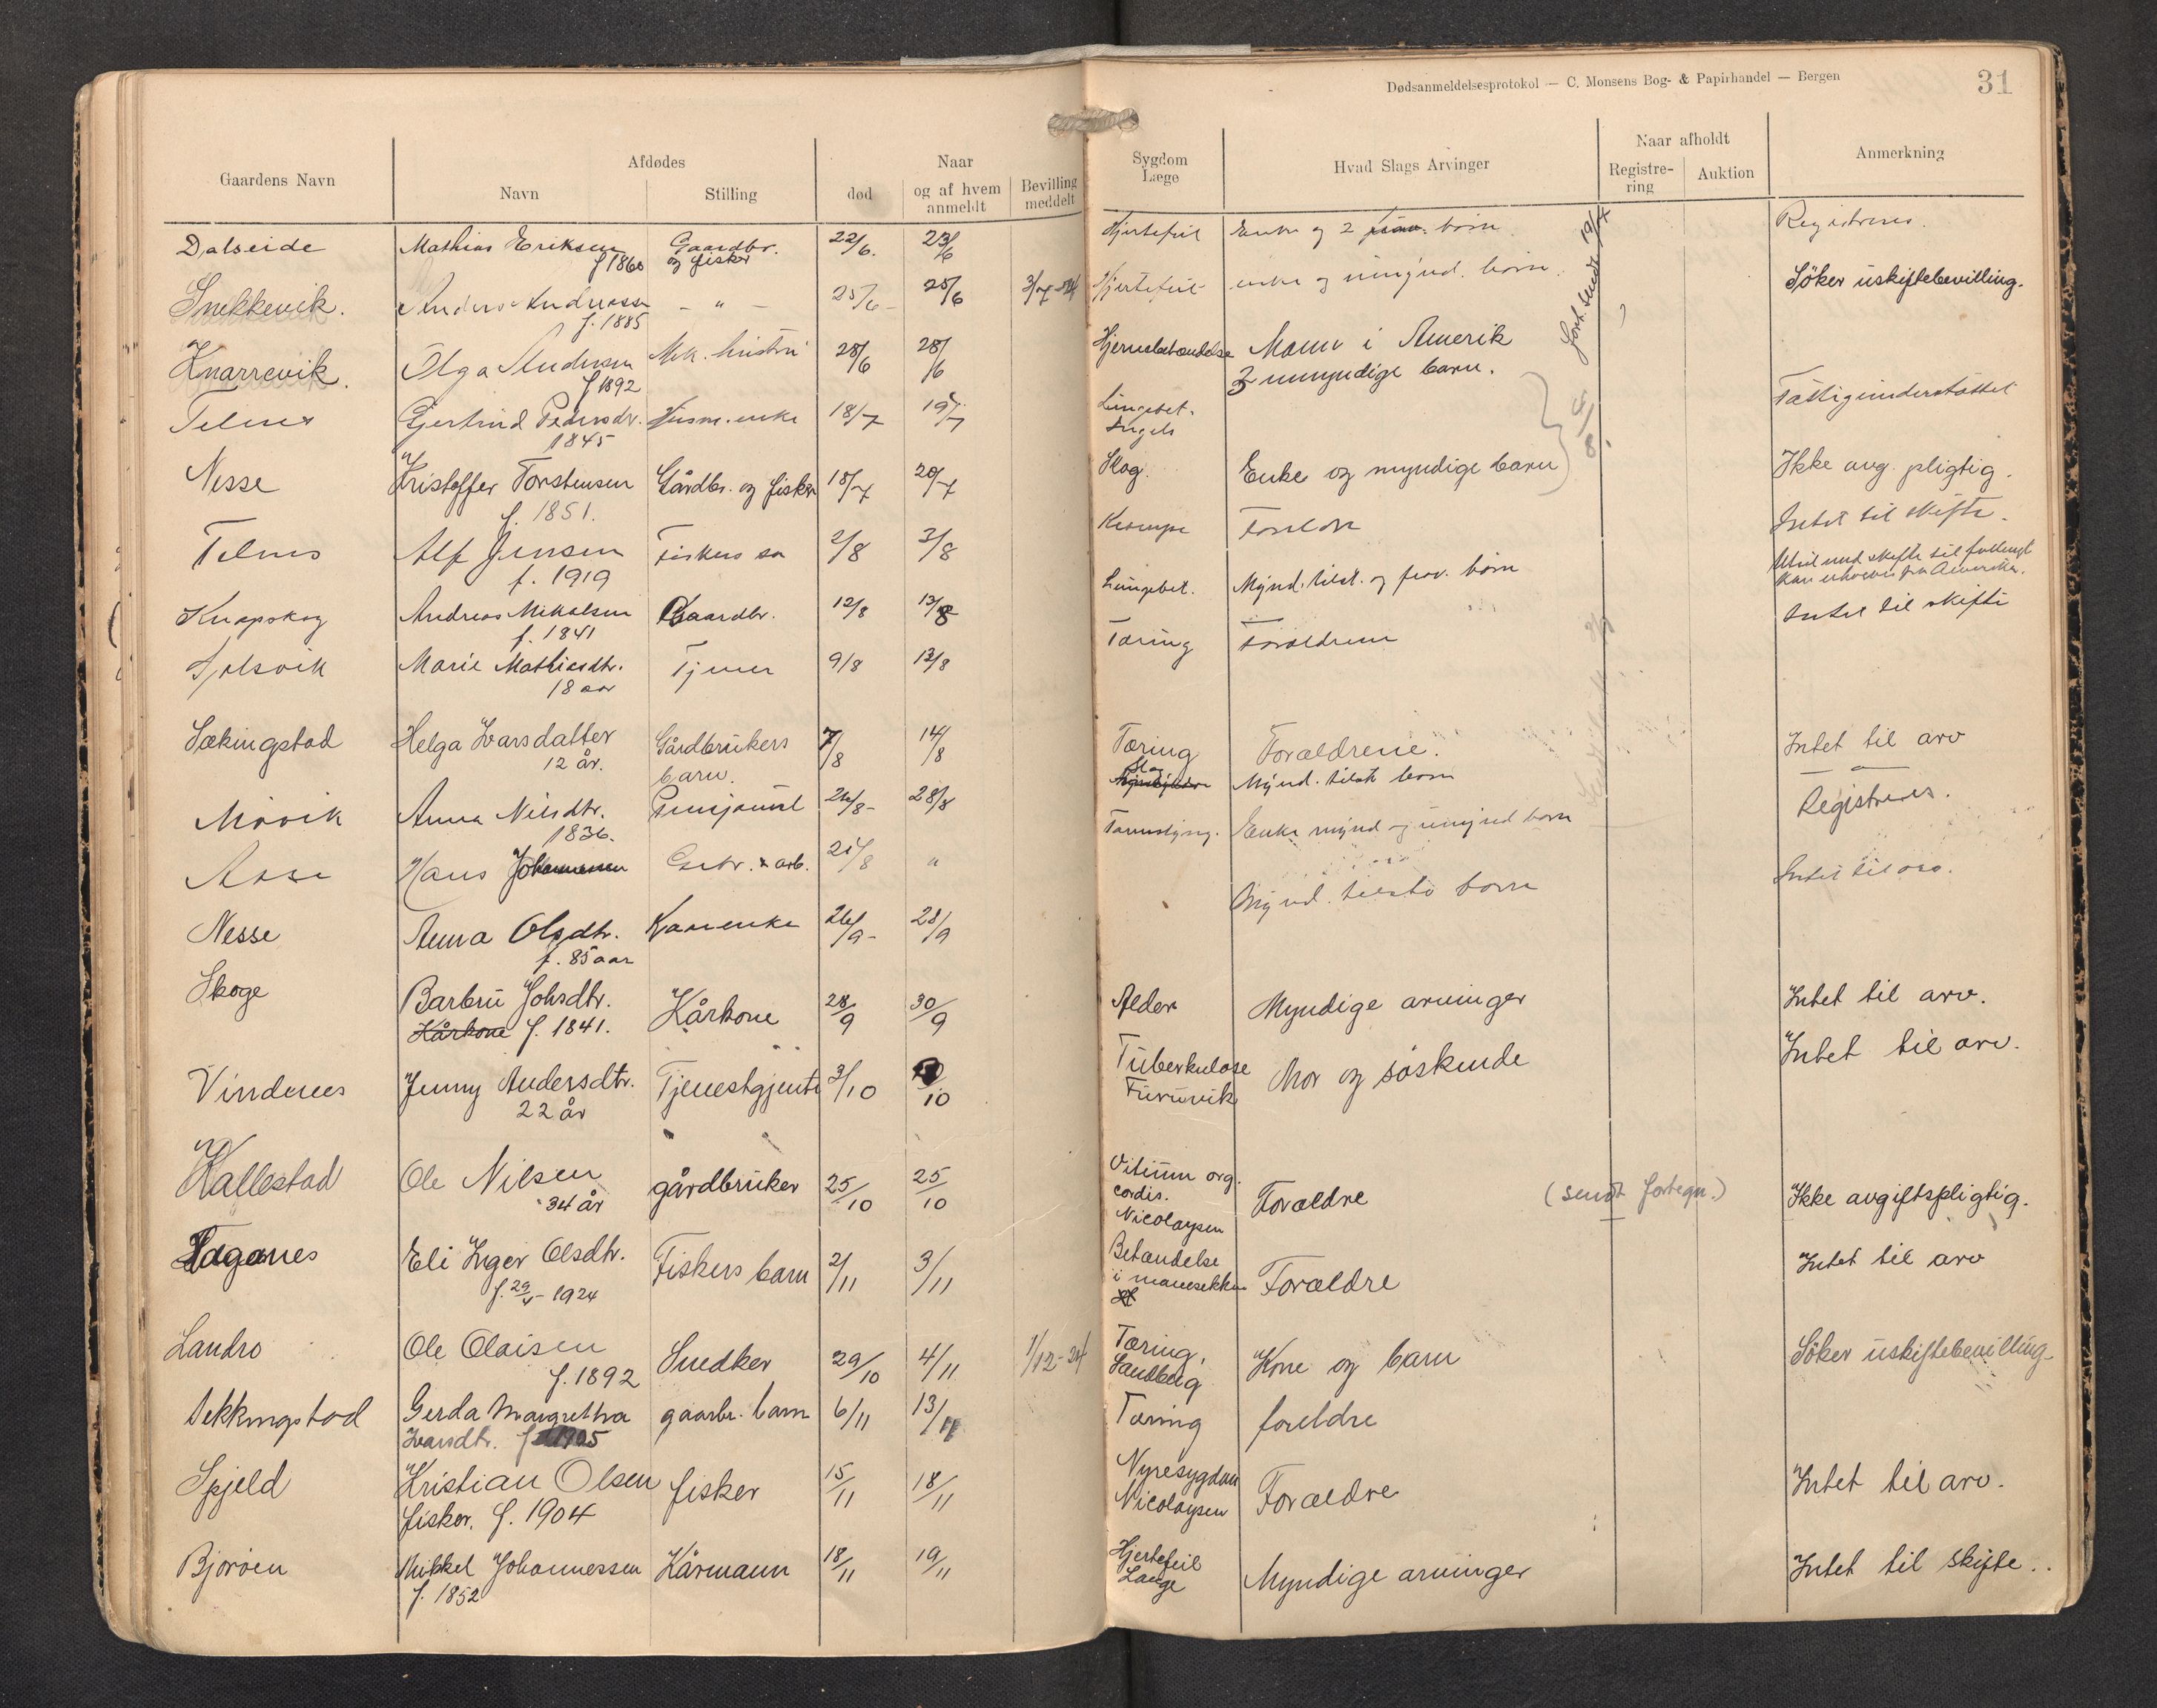 Dødsanmeldelsesprotokol — C. Monsens Bog- & Papirhandel — Bergen
31
Gaardens Navn
Afdødes
Navn
Stilling
død
Naar
og af hvem
anmeldt
Bevilling
meddelt
Sygdom
Læge
Hvad Slags Arvinger
Naar afholdt
Registre-
ring
Auktion
Anmerkning
Dalseide Mathias Eriksen Gaardbr. 22/6. 23/6 Hjertefeil Enke og 2 børn Registreres.
f 1860 og fisker
Snekkevik. Anders Andreassen - " - 25/6 25/6 3/7-24 Hjertefeil enke og umynd. børn. Söker uskiftebevilling.
f. 1885
Knarrevik. Olga Andersen Mek. hustru 28/6 28/6 Hjernebetændelse Mann i Amerik
f 1892 3 umyndige barn.
Telnes Gjertrud Pedersdr. Husm. enke 18/7 19/7 Lungebet. Fattigunderstøttet
1845
Nesse Kristoffer Torstensen Gårdbr. og fisker 18/7 20/7 Skog. Enke og myndige barn Ikke avg. pligtig.
f. 1851.
4/8
Telnes Alf Jensen Fiskers sø 2/8 3/8 Krampe Foreldre Intet til skifte.
f. 1919
Knapskog Andreas Mikalsen Gaardbr. 12/8 13/8 Lungebet. Mynd. tilst. og frav. børn
f. 1841
Marie Mathiasdtr. Tjener 9/8 13/8 Tæring Forældrene Intet til skifte
18 aar
Sækingstad Helga Ivarsdatter Gårdbrukers 7/8 14/8 Tæring Forældrene. Intet til arv
12 år. barn.
Anna Nilsdtr. 26/8- 28/8 Mynd. tilst. børn
1836.
Hans Johannessen Gbr. & arb. 21/8 " Enke mynd og umynd børn Registreres.
Nesse Anna Olsdtr. Kaarenke 26/9- 28/9 Mynd. tilste børn Intet til arv.
f. 85 aar
Skoge Barbru Johsdtr. Kårkone 28/9 30/9 Alder Myndige arvinger Intet til arv.
Kårkone f. 1841.
Vindenes Jenny Andersdtr. Tjenestgjente 3/10 /10 Tuberkulose Mor og søskende Intet til arv.
22 år Furuvik
Kallestad Ole Nilsen gårdbruker 25/10 25/10 Vitium org. Forældre (sendt fortegn.) Ikke avgiftspligtig.
34 år cordis.
Nicolaysen
Tøgenes Eli Inger Olsdtr. Fiskers barn 2/11 3/11 Betændelse Forældre Intet til arv
f. 29/4- 1924 i mavesekken
Landro Ole Olaisen Snedker 29/10 4/11 1/12-24 Tæring, Kone og barn Söker uskiftebevilling
f. 1892 Sandberg
Sekkingstad Gerda Margretha gaarbr. barn 6/11 13/11 Tæring foreldre
Ivarsdtr. f 1905
Spjeld Kristian Olsen fisker 15/11 18/11 Nyresygdom Forældre Intet til arv.
fisker. f. 1904 Nicolaysen
Bjorøen Mikkel Johannessen Kårmann 18/11 19/11 Hjertefeil Myndige arvinger Intet til skifte.
f. 1852 Lange